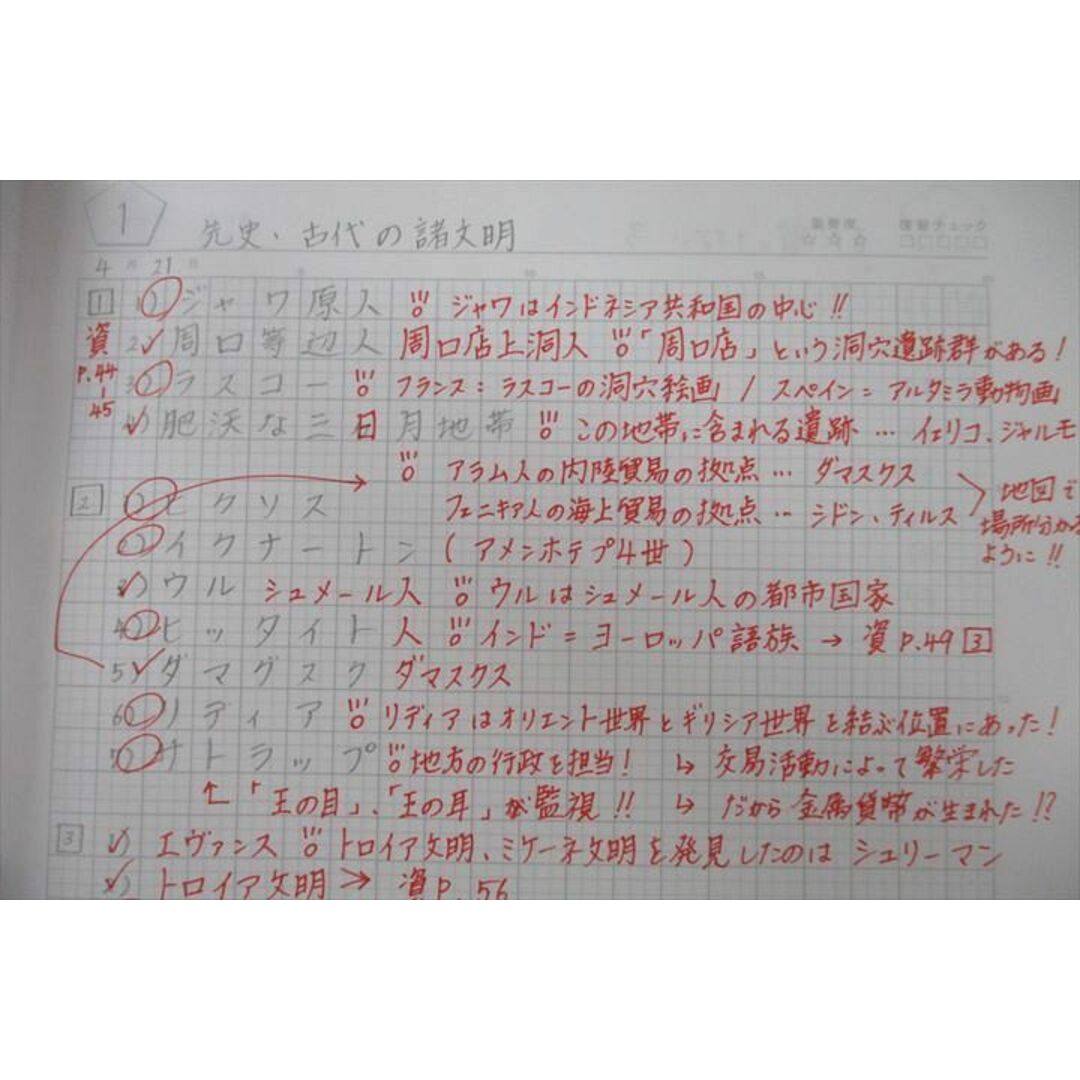 1 先史、古代の諸文明
重要度 ☆☆☆ 復習チェック □□□□□
4月21日
1 1) ジャワ原人 ジャワはインドネシア共和国の中心!!
資P.44-45
2) 周口等辺人 周口店上洞人 「周口店」という洞穴遺跡群がある!
3) ラスコー フランス:ラスコーの洞穴絵画 / スペイン=アルタミラ動物画
4) 肥沃な三日月地帯 この地帯に含まれる遺跡…イェリコ、ジャルモ
アラム人の内陸貿易の拠点…ダマスクス
2 1) ヒクソス フェニキア人の海上貿易の拠点…シドン、ティルス
地図で場所分かるように!!
2) イクナートン (アメンホテプ4世)
3) ウル シュメール人 ウルはシュメール人の都市国家
4) ヒッタイト人 インド=ヨーロッパ語族 → 資P.49 3
5) ダマグスク ダマスクス
6) リディア リディアはオリエント世界とギリシア世界を結ぶ位置にあった!
7) サトラップ 地方の行政を担当! ↳ 交易活動によって繁栄した
「王の目」、「王の耳」が監視!! ↳ だから金属貨幣が生まれた!?
3 1) エヴァンス トロイア文明、ミケーネ文明を発見したのはシュリーマン
2) トロイア文明 → 資P.56